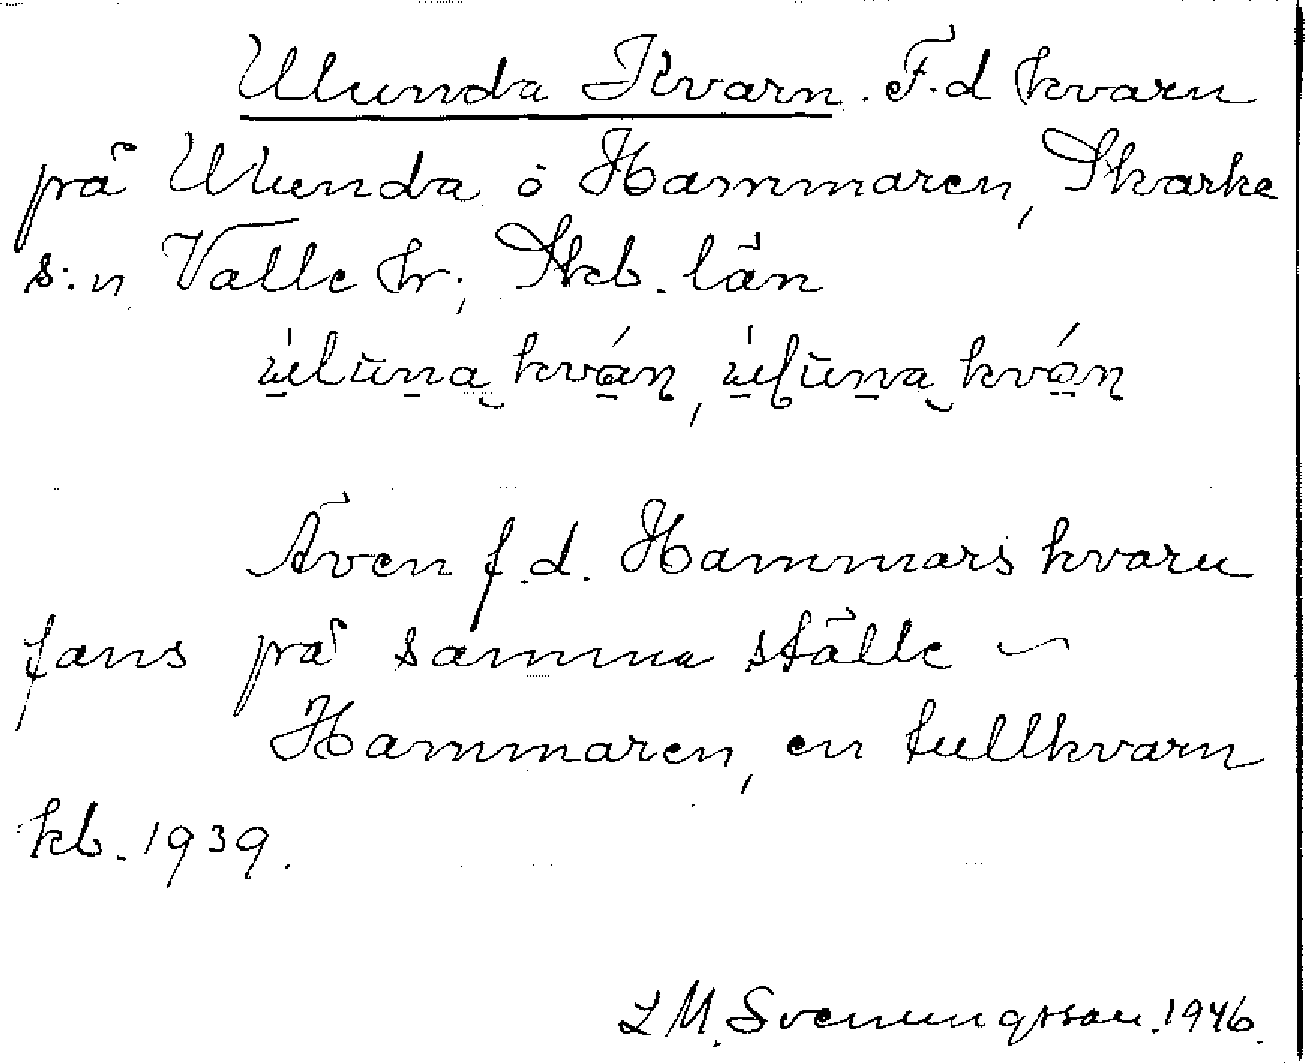 Ulunda Kvarn. F.d kvarn
på Ulunda o Hammaren, Skarke
s:n Valle hr; Skb. län
Även f.d. Hammars kvarn
fans på samma ställe ~
Hammaren, en tullkvarn
kb. 1939.
L M. Svenungsson. 1946.